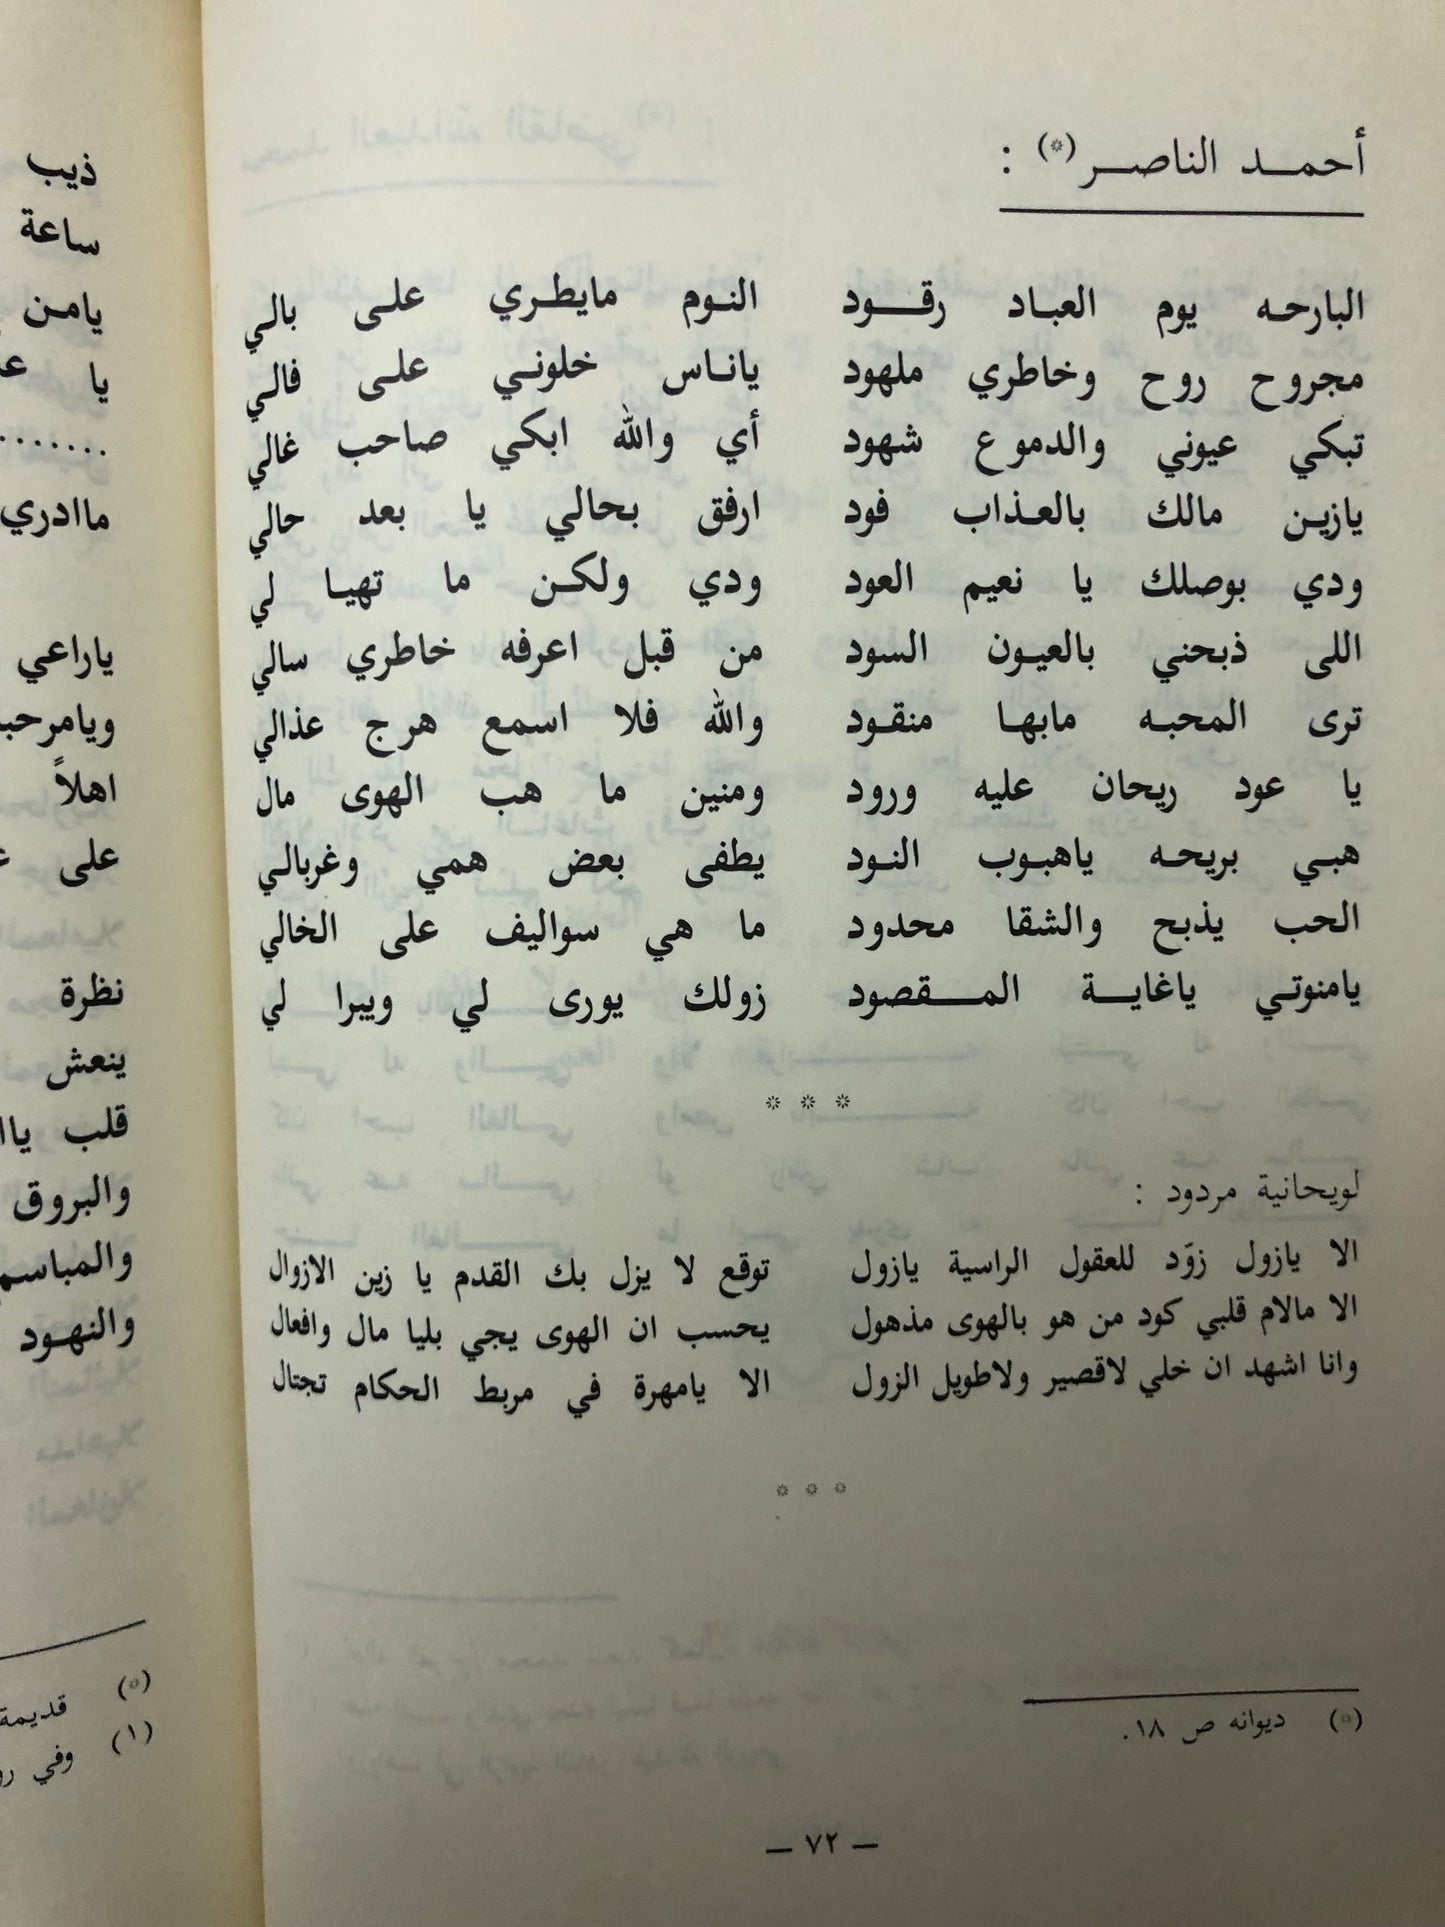 أحمـد الناصـر(*) :
البارحـه يوم العبـاد رقـود النـوم مايطـري علـى بالـي
مجروح روح وخاطري ملهود يانـاس خلونـي علـى فالـي
تبكي عيوني والدموع شهود أي والله ابكـي صاحب غالي
يازيـن مالك بالعـذاب فود ارفق بحالي يا بعد حالي
ودي بوصلك يا نعيم العود ودي ولكـن ما تهيـا لي
اللى ذبحني بالعيـون السود من قبل اعرفه خاطري سالي
ترى المحبـه مابهـا منقـود والله فلا اسمـع هرج عذالي
يا عود ريحان عليه ورود ومنين ما هب الهوى مال
هبـي بريحـه ياهبـوب النـود يطفى بعض همي وغربالي
الحب يذبح والشقا محدود ما هي سواليف على الخالي
يامنوتـي ياغايـة المـقصود زولك يورى لي ويبرا لي
* * *
لويحانية مردود :
الا يازول زوّد للعقول الراسية يازول توقع لا يزل بك القدم يا زين الازوال
الا مالام قلبي كود من هو بالهوى مذهول يحسب ان الهوى يجي بليا مال وافعال
وانا اشهد ان خلي لاقصير ولاطويل الزول الا يامهرة في مربط الحكام تجتال
* * *
(*) ديوانه ص ١٨.
— ٧٢ —
ذيب
ساعة
يامـن
يا
........
ماادري
ياراعي
ويامرحبـ
اهلاً
على
نظرة
ينعش
قلب
والبروق
والمباسم
والنهـود
(*) قديمة
(١) وفي